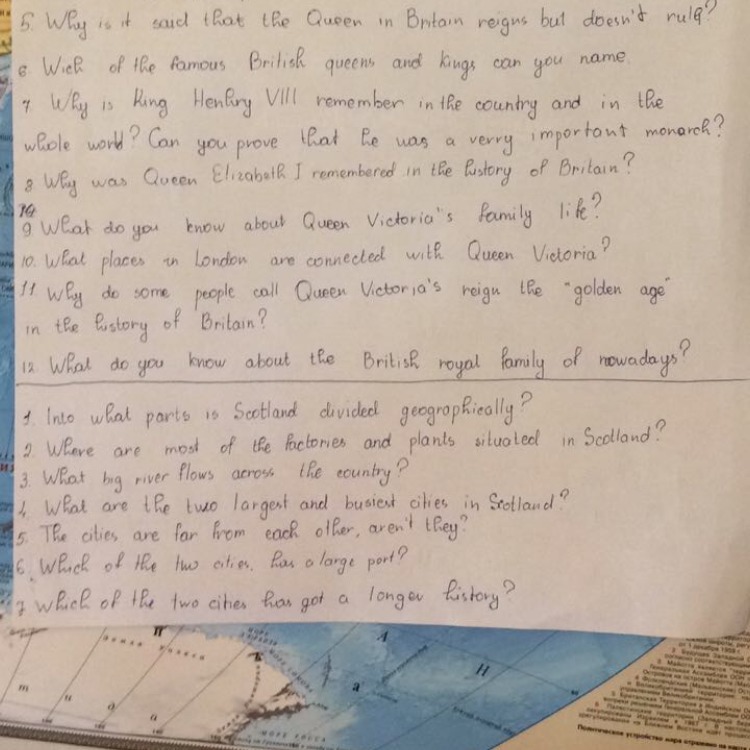 5. Why is it said that the Queen in Britain reigns but doesn't rule?
6. Wich of the famous British queens and kings can you name.
7. Why is King Henhry VIII remember in the country and in the
whole world? Can you prove that he was a verry important monarch?
8 Why was Queen Elizabeth I remembered in the history of Britain?
9 What do you know about Queen Victoria"s family life?
10. What places in London are connected with Queen Victoria?
11. Why do some people call Queen Victoria's reign the "golden age"
in the history of Britain?
12. What do you know about the British royal family of nowadays?
1. Into what parts is Scotland divided geographically?
2. Where are most of the factories and plants situated in Scotland?
3. What big river flows across the country?
4. What are the two largest and busiest cities in Scotland?
5. The cities are far from each other, aren't they?
6. Which of the two cities, has a large port?
7 Which of the two cities has got a longer history?
МОРЕ РОССА
Политическое устройство мира отражено на